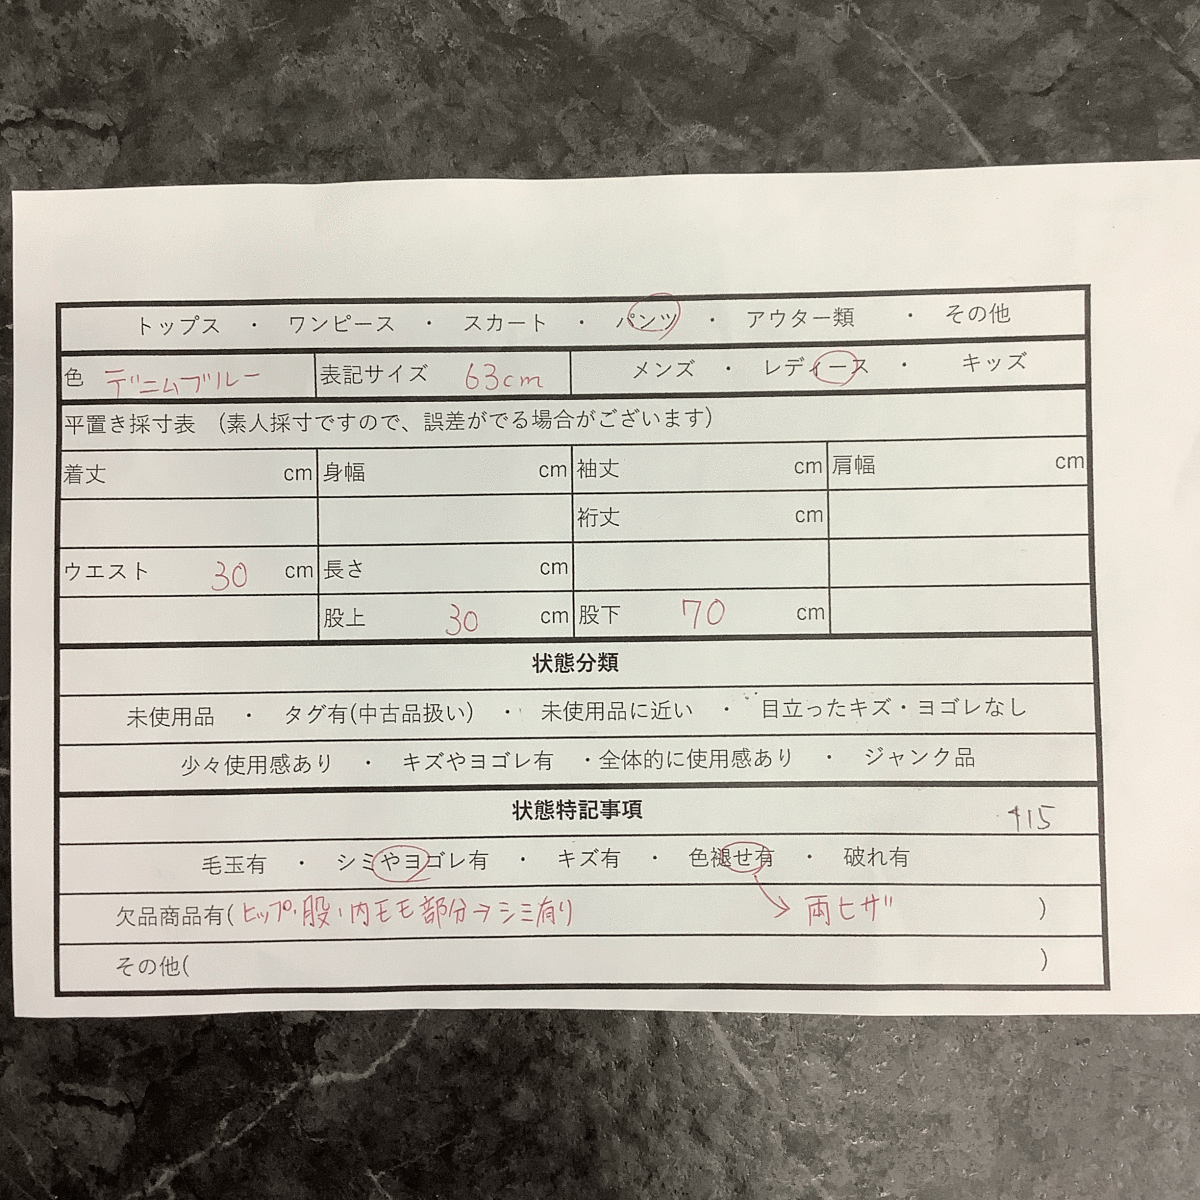 トップス ・ ワンピース ・ スカート ・ パンツ ・ アウター類 ・ その他
色 デニムブルー 表記サイズ 63cm メンズ ・ レディース ・ キッズ
平置き採寸表 （素人採寸ですので、誤差がでる場合がございます）
着丈 cm 身幅 cm 袖丈 cm 肩幅 cm
裄丈 cm
ウエスト 30 cm 長さ cm
股上 30 cm 股下 70 cm
状態分類
未使用品 ・ タグ有(中古品扱い) ・ 未使用品に近い ・ 目立ったキズ・ヨゴレなし
少々使用感あり ・ キズやヨゴレ有 ・全体的に使用感あり ・ ジャンク品
状態特記事項
毛玉有 ・ シミやヨゴレ有 ・ キズ有 ・ 色褪せ有 ・ 破れ有
欠品商品有(ヒップ・股・内モモ部分→シミ有り →両ヒザ )
その他( )